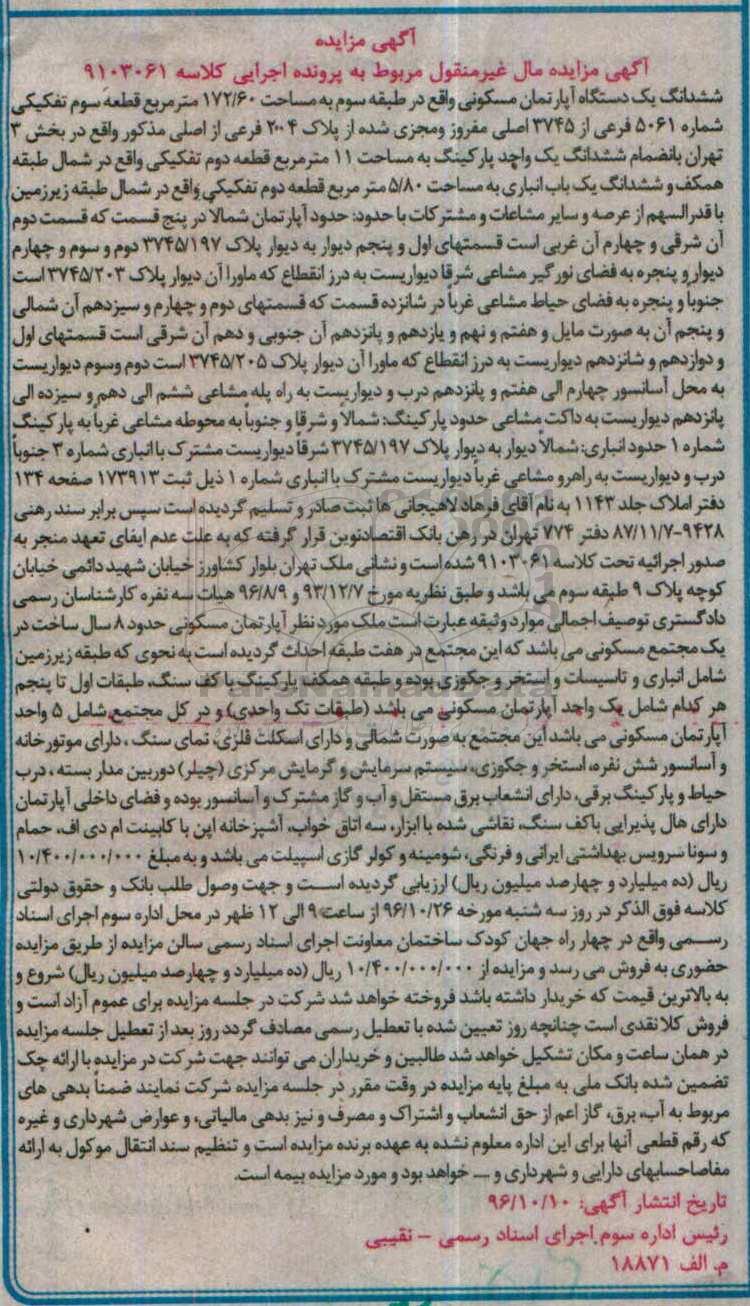 آگهی مزایده
آگهی مزایده مال غیرمنقول مربوط به پرونده اجرایی کلاسه ۹۱۰۳۰۶۱
ششدانگ یک دستگاه آپارتمان مسکونی واقع در طبقه سوم به مساحت ۱۷۲/۶۰ مترمربع قطعه سوم تفکیکی
شماره ۵۰۶۱ فرعی از ۳۷۴۵ اصلی مفروز ومجزی شده از پلاک ۲۰۰۴ فرعی از اصلی مذکور واقع در بخش ۳
تهران بانضمام ششدانگ یک واحد پارکینگ به مساحت ۱۱ مترمربع قطعه دوم تفکیکی واقع در شمال طبقه
همکف و ششدانگ یک باب انباری به مساحت ۵/۸۰ متر مربع قطعه دوم تفکیکی واقع در شمال طبقه زیرزمین
با قدرالسهم از عرصه و سایر مشاعات و مشترکات با حدود: حدود آپارتمان شمالاً در پنج قسمت که قسمت دوم
آن شرقی و چهارم آن غربی است قسمتهای اول و پنجم دیوار به دیوار پلاک ۳۷۴۵/۱۹۷ دوم و سوم و چهارم
دیوار و پنجره به فضای نورگیر مشاعی شرقا دیواریست به درز انقطاع که ماورا آن دیوار پلاک ۳۷۴۵/۲۰۳ است
جنوباً و پنجره به فضای حیاط مشاعی غرباً در شانزده قسمت که قسمتهای دوم و چهارم و سیزدهم آن شمالی
و پنجم آن به صورت مایل و هفتم و نهم و یازدهم و پانزدهم آن جنوبی و دهم آن شرقی است قسمتهای اول
و دوازدهم و شانزدهم دیواریست به درز انقطاع که ماورا آن دیوار پلاک ۳۷۴۵/۲۰۵ است دوم وسوم دیواریست
به محل آسانسور چهارم الی هفتم و پانزدهم درب و دیواریست به راه پله مشاعی ششم الی دهم و سیزده الی
پانزدهم دیواریست به داکت مشاعی حدود پارکینگ: شمالا و شرقا و جنوباً به محوطه مشاعی غرباً به پارکینگ
شماره ۱ حدود انباری: شمالاً دیوار به دیوار پلاک ۳۷۴۵/۱۹۷ شرقاً دیواریست مشترک با انباری شماره ۳ جنوباً
درب و دیواریست به راهرو مشاعی غرباً دیواریست مشترک با انباری شماره ۱ ذیل ثبت ۱۷۳۹۱۳ صفحه ۱۳۴
دفتر املاک جلد ۱۱۴۳ به نام آقای فرهاد لاهیجانی ها ثبت صادر و تسلیم گردیده است سپس برابر سند رهنی
۹۴۲۸-۸۷/۱۱/۷ دفتر ۷۷۴ تهران در رهن بانک اقتصادنوین قرار گرفته که به علت عدم ایفای تعهد منجر به
صدور اجرائیه تحت کلاسه ۹۱۰۳۰۶۱ شده است و نشانی ملک تهران بلوار کشاورز خیابان شهید دائمی خیابان
کوچه پلاک ۹ طبقه سوم می باشد و طبق نظریه مورخ ۹۳/۱۲/۷ و ۹۶/۸/۹ هیات سه نفره کارشناسان رسمی
دادگستری توصیف اجمالی موارد وثیقه عبارت است ملک مورد نظر آپارتمان مسکونی حدود ۸ سال ساخت در
یک مجتمع مسکونی می باشد که این مجتمع در هفت طبقه احداث گردیده است به نحوی که طبقه زیرزمین
شامل انباری و تاسیسات و استخر و جکوزی بوده و طبقه همکف پارکینگ با کف سنگ، طبقات اول تا پنجم
هر کدام شامل یک واحد آپارتمان مسکونی می باشد (طبقات تک واحدی) و در کل مجتمع شامل ۵ واحد
آپارتمان مسکونی می باشد این مجتمع به صورت شمالی و دارای اسکلت فلزی، نمای سنگ ، دارای موتورخانه
و آسانسور شش نفره، استخر و جکوزی، سیستم سرمایش و گرمایش مرکزی (چیلر) دوربین مدار بسته ، درب
حیاط و پارکینگ برقی، دارای انشعاب برق مستقل و آب و گاز مشترک و آسانسور بوده و فضای داخلی آپارتمان
دارای هال پذیرایی باکف سنگ، نقاشی شده با ابزار، سه اتاق خواب، آشپزخانه اپن با کابینت ام دی اف، حمام
و سونا سرویس بهداشتی ایرانی و فرنگی، شومینه و کولر گازی اسپیلت می باشد و به مبلغ ۱۰/۴۰۰/۰۰۰/۰۰۰
ریال (ده میلیارد و چهارصد میلیون ریال) ارزیابی گردیده است و جهت وصول طلب بانک و حقوق دولتی
کلاسه فوق الذکر در روز سه شنبه مورخه ۹۶/۱۰/۲۶ از ساعت ۹ الی ۱۲ ظهر در محل اداره سوم اجرای اسناد
رسمی واقع در چهار راه جهان کودک ساختمان معاونت اجرای اسناد رسمی سالن مزایده از طریق مزایده
حضوری به فروش می رسد و مزایده از ۱۰/۴۰۰/۰۰۰/۰۰۰ ریال (ده میلیارد و چهارصد میلیون ریال) شروع و
به بالاترین قیمت که خریدار داشته باشد فروخته خواهد شد شرکت در جلسه مزایده برای عموم آزاد است و
فروش کلا نقدی است چنانچه روز تعیین شده با تعطیل رسمی مصادف گردد روز بعد از تعطیل جلسه مزایده
در همان ساعت و مکان تشکیل خواهد شد طالبین و خریداران می توانند جهت شرکت در مزایده با ارائه چک
تضمین شده بانک ملی به مبلغ پایه مزایده در وقت مقرر در جلسه مزایده شرکت نمایند ضمناً بدهی های
مربوط به آب، برق، گاز اعم از حق انشعاب و اشتراک و مصرف و نیز بدهی مالیاتی، و عوارض شهرداری و غیره
که رقم قطعی آنها برای این اداره معلوم نشده به عهده برنده مزایده است و تنظیم سند انتقال موکول به ارائه
مفاصاحسابهای دارایی و شهرداری و ... خواهد بود و مورد مزایده بیمه است.
تاریخ انتشار آگهی: ۹۶/۱۰/۱۰
رئیس اداره سوم اجرای اسناد رسمی - نقیبی
م. الف ۱۸۸۷۱